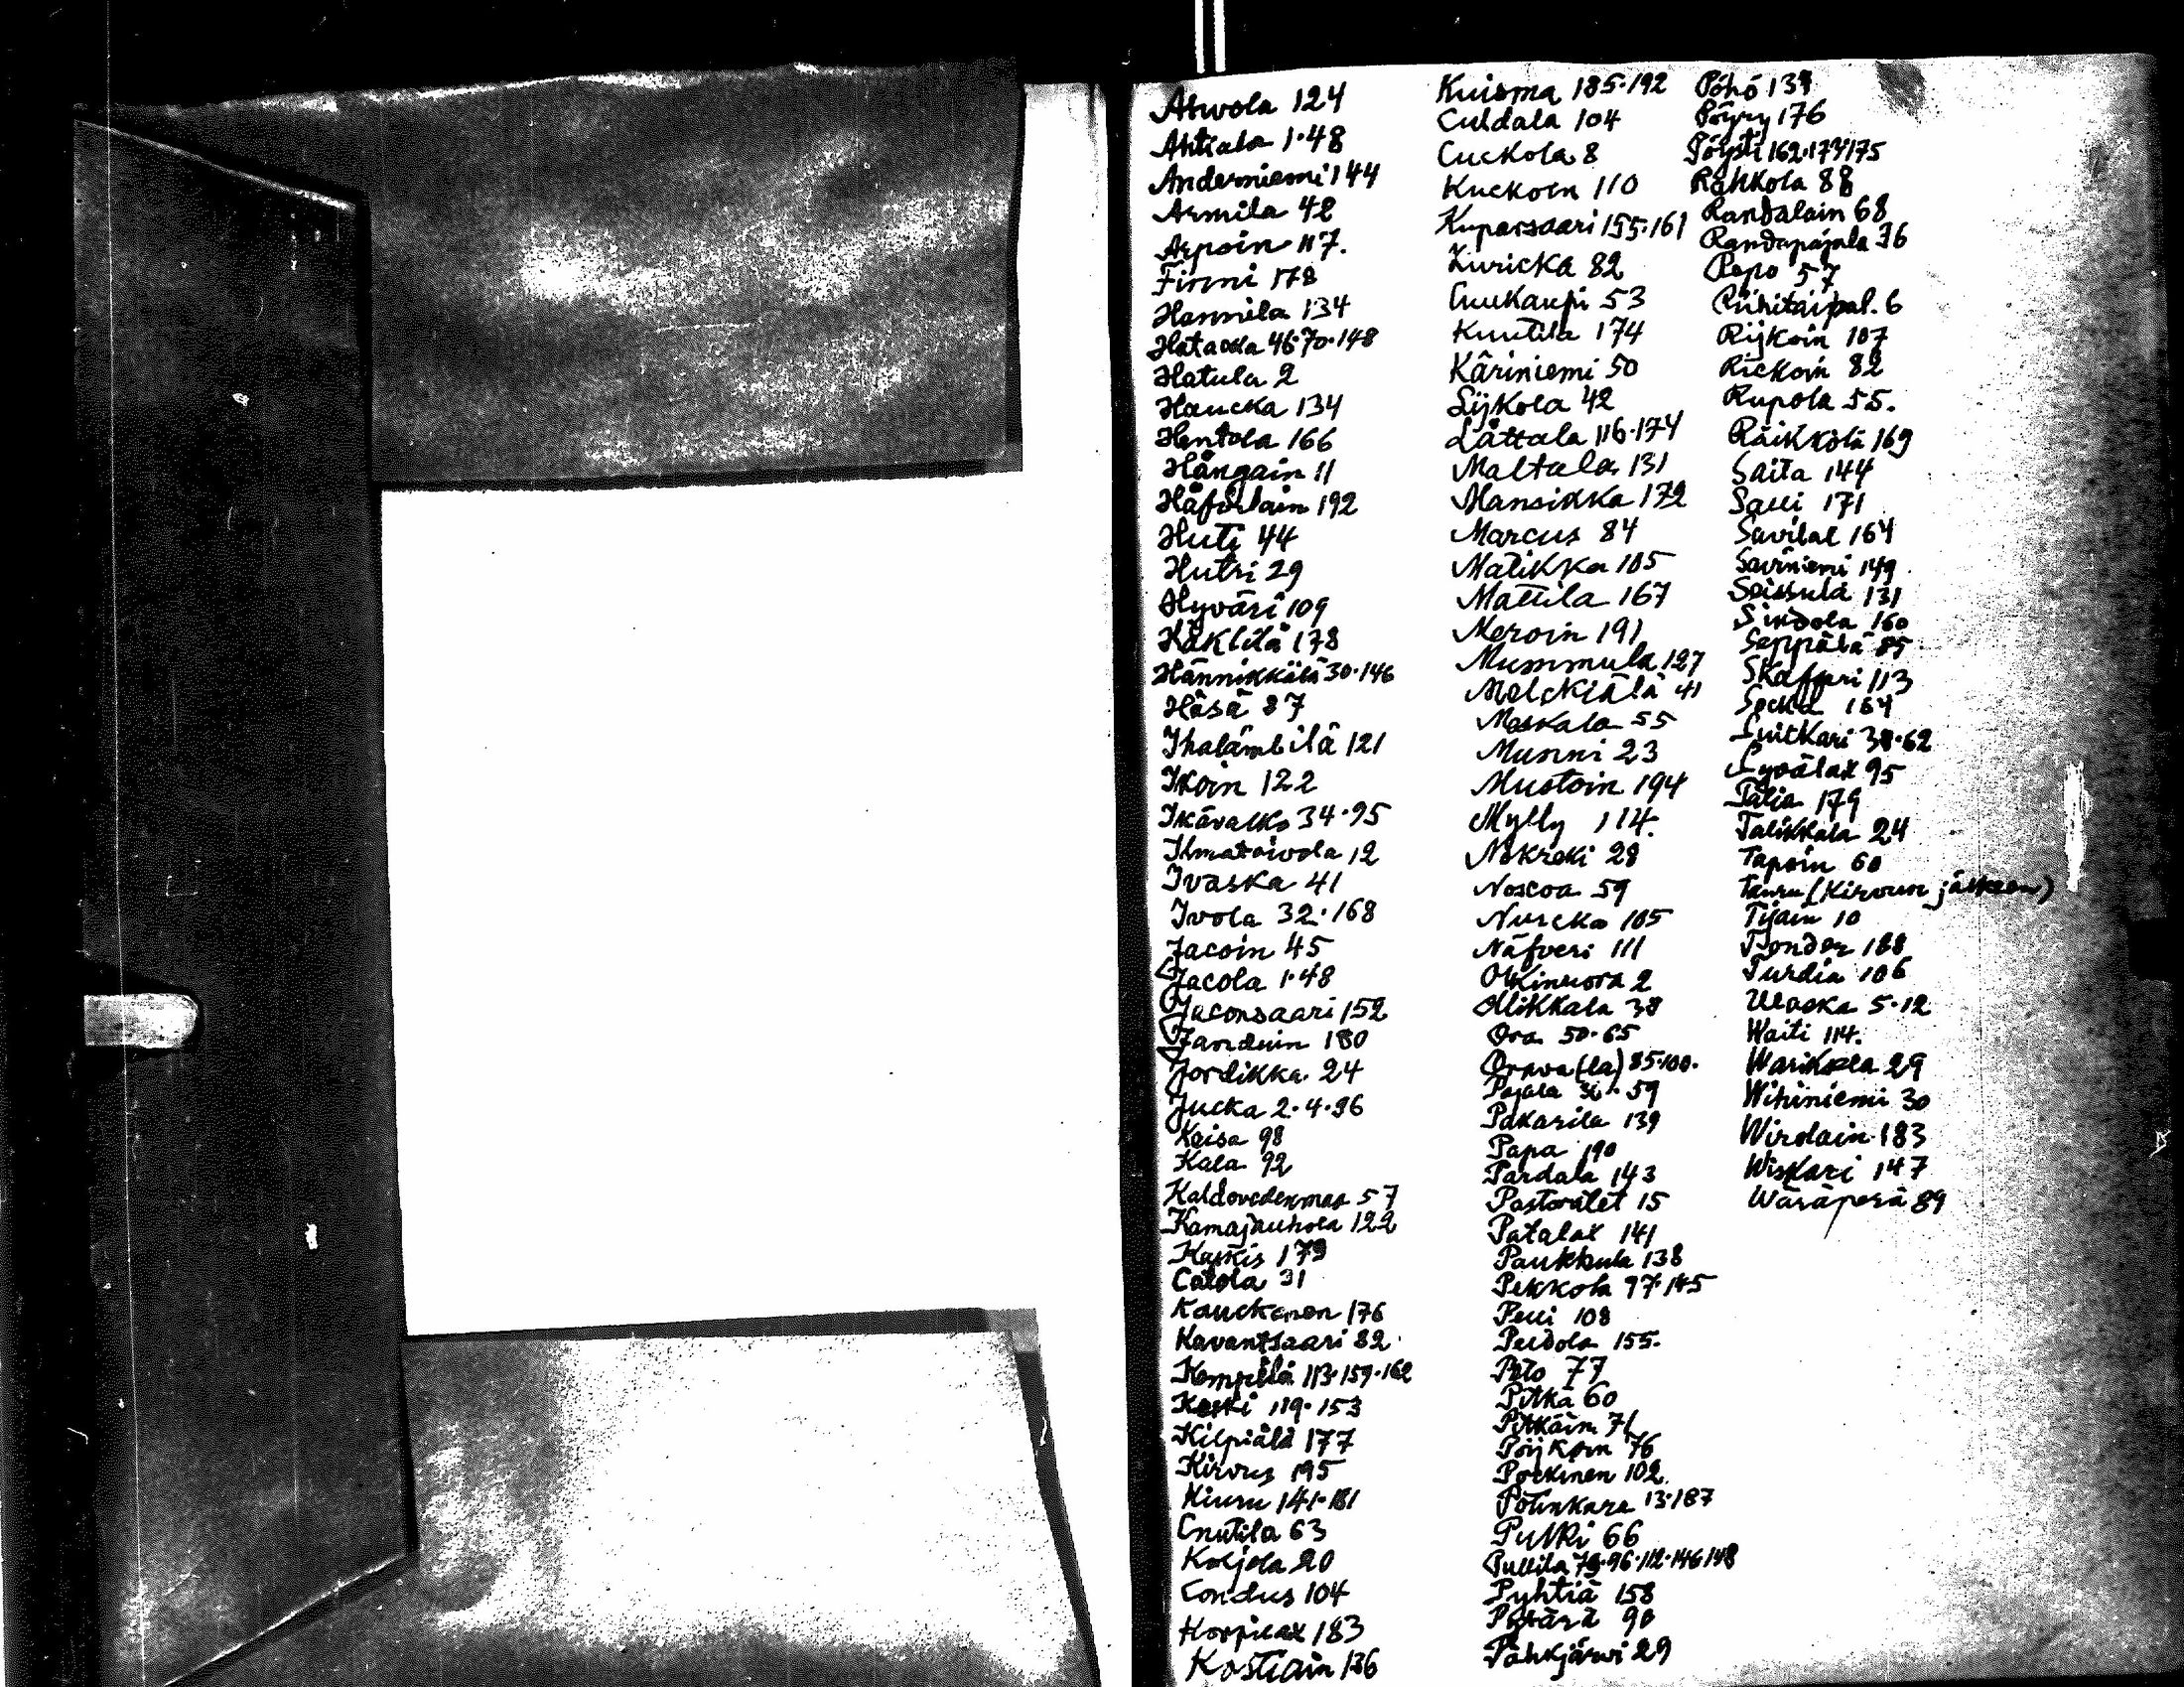 Ahvola 124
Ahtiala 1·48
Anderniemi 144
Armila 42
Arpoin 117.
Finni 178
Hannila 134
Hatacka 46·70·148
Hatula 2
Haucka 134
Hentola 166
Hångain 11
Håfoilain 192
Huti 44
Hutri 29
Hyväri 109
Häkälä 178
Hännikkälä 30·146
Häsä 87
Ihalämbilä 121
Ikoin 122
Ikävalko 34·95
Ilmatoivola 12
Ivaska 41
Ivola 32·168
Jacoin 45
Jacola 1·48
Jaconsaari 152
Jarduin 180
Jordikka 24
Jucka 2·4·96
Kaisa 98
Kala 92
Kaldovedenmaa 57
Kamajauhola 122
Kaskis 179
Catola 31
Kauckanen 176
Kavantsaari 82
Kempilä 113·159·162
Keski 119·153
Kilpiälä 177
Kirvus 195
Kiuru 141·181
Cnutila 63
Koljola 20
Condus 104
Korpilax 183
Kostiain 136
Kuisma 185·192
Culdala 104
Cuckola 8
Kuckoin 110
Kuparsaari 155·161
Kuricka 82
Cuukaupi 53
Kuutila 174
Käriniemi 50
Lijkola 42
Lättälä 116·174
Maltala 131
Mansikka 172
Marcus 84
Matikka 105
Mattila 167
Meroin 191
Mummula 127
Melckiälä 41
Moskala 55
Munni 23
Mustoin 194
Mylly 114.
Nokreki 28
Noscoa 59
Nurcko 105
Näfveri 111
Olkinuora 2
Ollikkala 38
Ora 50·65
Orava(la) 85·100.
Pajala 36·59
Pakarila 139
Papa 190
Pardala 143
Pastorålet 15
Patalax 141
Paukkula 138
Pekkola 97·145
Pelli 108
Peldola 155.
Pelto 77
Pitkä 60
Pitkäin 71
Poijkoin 76
Pockinen 102
Potinkara 13·187
Pulkki 66
Pullila 79·96·112·146·148
Pyhtiä 158
Pytärä 90
Pähkjärvi 29
Pöhö 139
Pöyry 176
Pöysti 162·173·175
Rahkola 88
Randalain 68
Randapajala 36
Repo 57
Riihitaipal. 6
Rijkoin 107
Rickoin 82
Rupola 55.
Räikkölä 169
Saita 144
Salli 171
Savilax 164
Saviniemi 149
Seissula 131
Sindola 160
Seppälä 85
Skaffari 113
Socka 164
Suitkari 38·62
Syvälax 95
Talia 179
Talikkala 24
Tapoin 60
Tauru (Kirvun jälkeen)
Tijain 10
Tonder 188
Turdia 106
Ulaska 5·12
Waiti 114.
Warikkola 29
Wihiniemi 30
Wirolain 183
Wiskari 147
Wäräperä 89